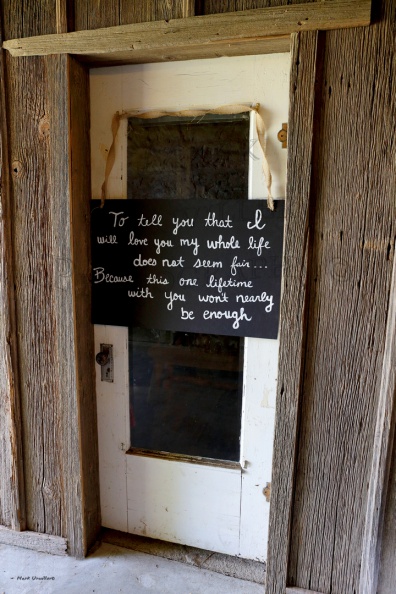 To tell you that I
will love you my whole life
does not seem fair...
Because this one lifetime
with you won't nearly
be enough